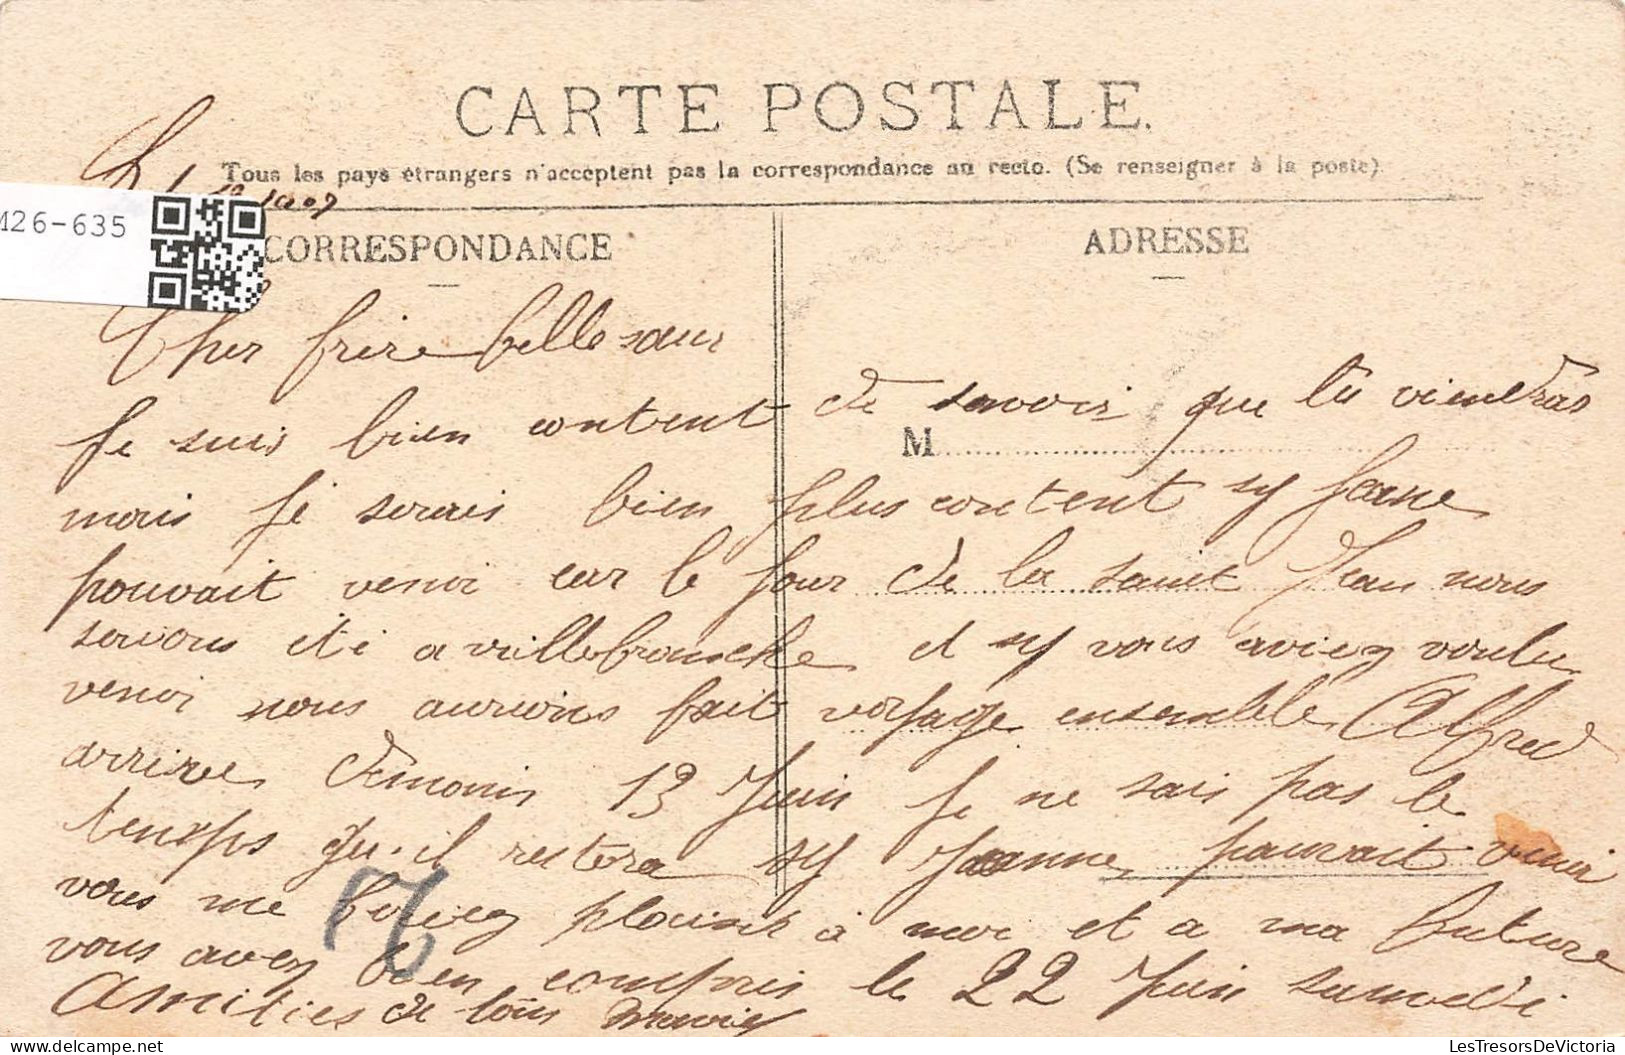 CARTE POSTALE.
Tous les pays étrangers n'acceptent pas la correspondance au recto. (Se renseigner à la poste).
1907
M26-635
CORRESPONDANCE
ADRESSE
Cher frère belle sœur
Je suis bien content de savoir que tu viendras
M
mais je serais bien plus content sy Janne
pouvait venir car le jour de la saint Jean nous
serions été a villefranche et sy vous aviez voulu
venir nous aurions fait voyage ensemble Alfred
arrive 13 Juin je ne sais pas le
temps qu'il restera sy Jeanne pouvait venir
vous me feriez plaisir à moi et a ma future
vous avez bien compris le 22 Juin samedi
Amities de tous
LesTresorsDeVictoria